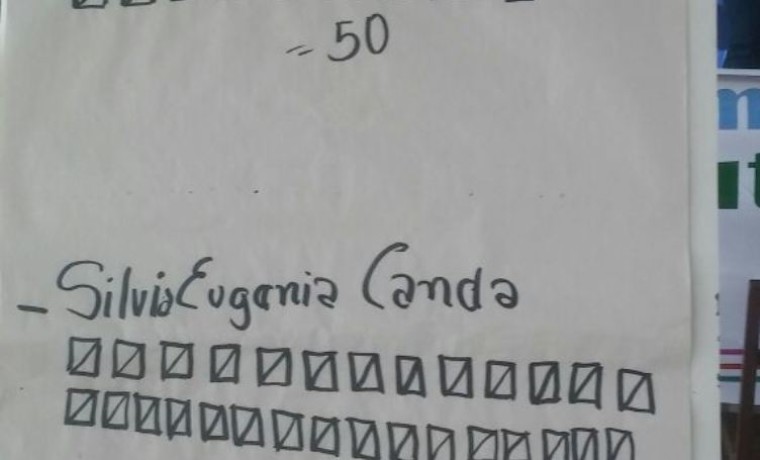 = 50
- Silvia Eugenia Canda
m
ut